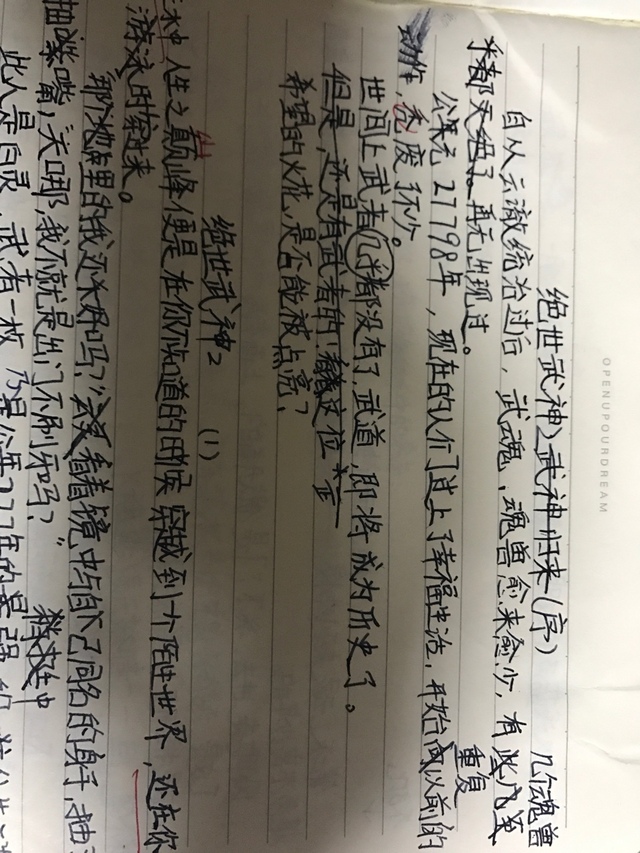 OPENUPOURDREAM
绝世武神2武神归来（序）
几个魂兽
自从云澈统治过后，武魂、魂兽愈来愈少，有些几至
乎都灭绝了。再无出现过。
重复
公元27798年，现在的人们过上了幸福生活，开始以前的
动作，荒废不少。
世间上武者几乎都没有了，武道，即将成为历史了。
但是，还是有武者的！看这位
希望的火花，是否能被点亮？
绝世武神2
（1）
人生之巅峰便是在你不知道的时候穿越到个陌生世界，还在你
游泳的
那地里的我还好吗？”看着镜中与自己同名的身子，抽
抽嘴嘴，关口哪，我不就是出门不刷牙吗？”
此人是白灵，武有一枚，乃是公年277年的最强的